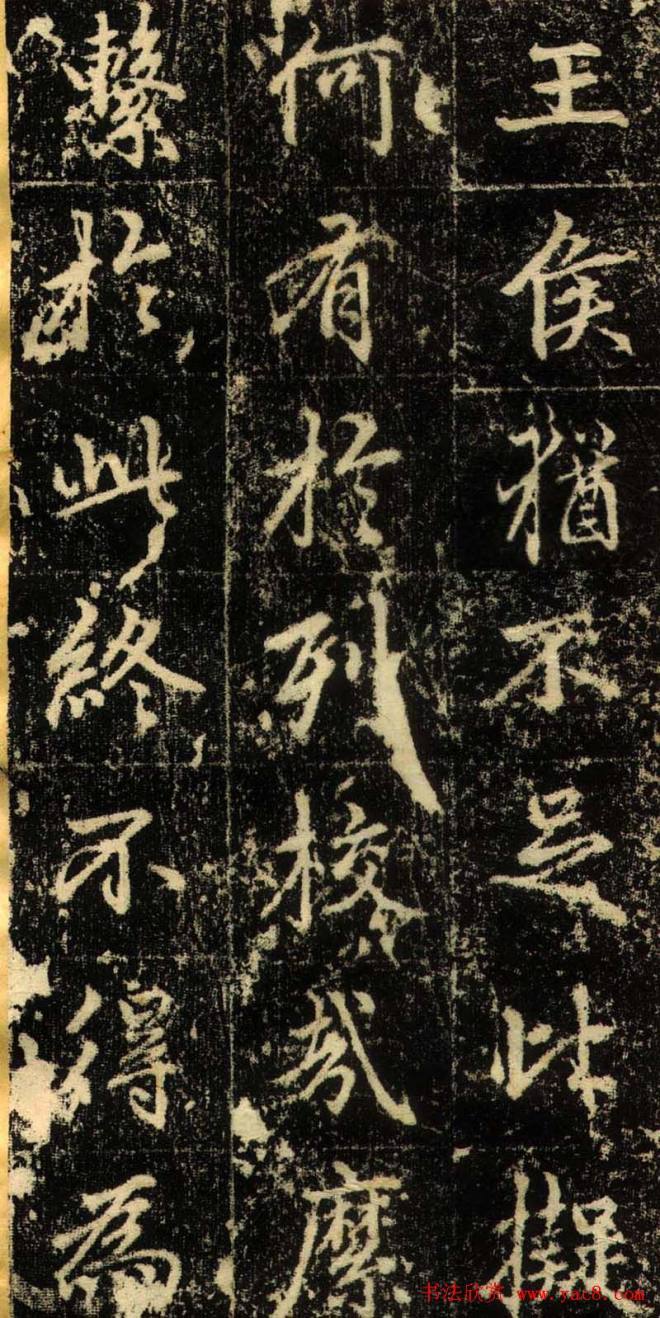 王侯猶不足比擬
何有於列校哉
繫於此終不得為
书法欣赏 www.yac8.com